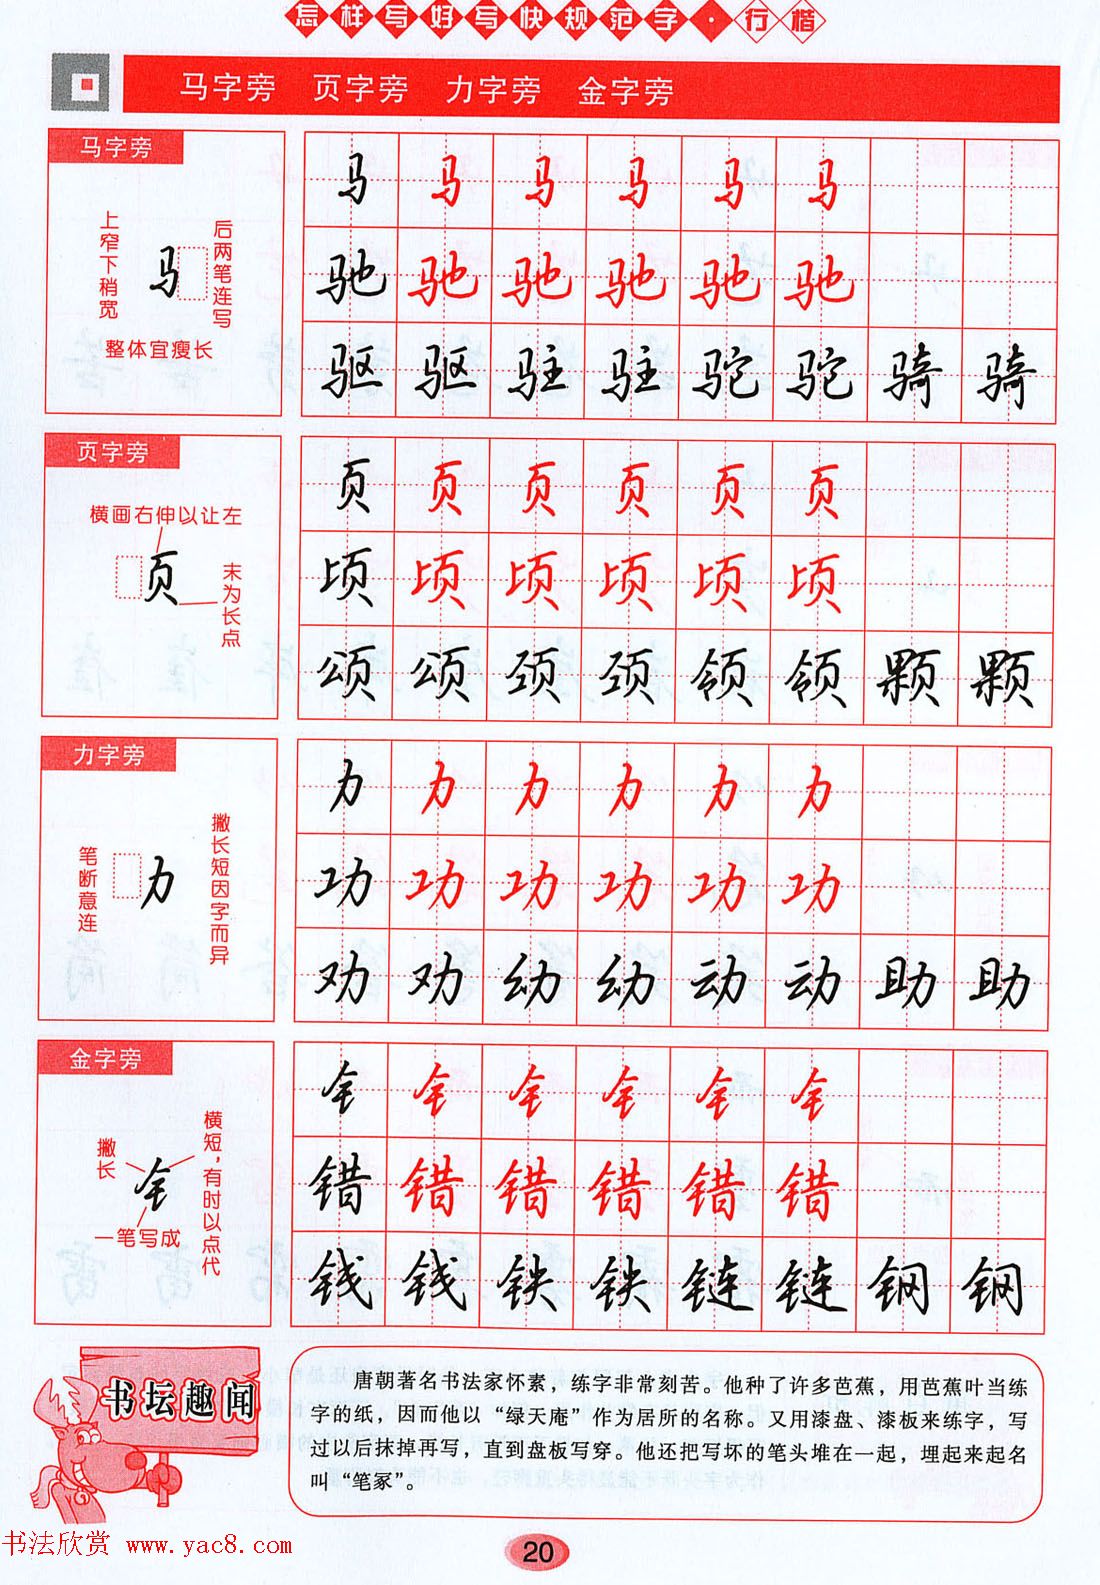 怎样写好写快规范字·行楷
马字旁 页字旁 力字旁 金字旁
马字旁
上窄下稍宽
马
后两笔连写
整体宜瘦长
马 马 马 马 马 马
驰 驰 驰 驰 驰 驰
驱 驱 驻 驻 驼 驼 骑 骑
页字旁
横画右伸以让左
页
末为长点
页 页 页 页 页 页
顷 顷 顷 顷 顷 顷
颂 颂 颈 颈 领 领 颗 颗
力字旁
笔断意连
力
撇长短因字而异
力 力 力 力 力 力
功 功 功 功 功 功
劝 劝 幼 幼 动 动 助 助
金字旁
撇长
钅
横短，有时以点代
一笔写成
钅 钅 钅 钅 钅 钅
错 错 错 错 错 错
钱 钱 铁 铁 链 链 钢 钢
书坛趣闻
唐朝著名书法家怀素，练字非常刻苦。他种了许多芭蕉，用芭蕉叶当练
字的纸，因而他以“绿天庵”作为居所的名称。又用漆盘、漆板来练字，写
过以后抹掉再写，直到盘板写穿。他还把写坏的笔头堆在一起，埋起来起名
叫“笔冢”。
书法欣赏 www.yac8.com
20